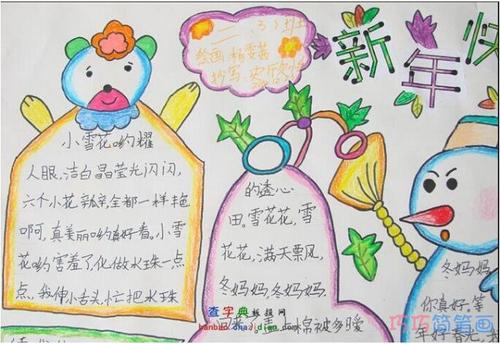 二、(3)班
绘画:杨雯茜
新年快
小雪花哟耀
人眼,洁白晶莹光闪闪,
六个小花瓣,瓣瓣全都一样艳
啊呵,真美丽哟真好看。小雪
花哟害羞了,化做水珠一点
点,我伸小舌头,忙把水珠
的透心
田。雪花花,雪
花花,满天票风,
冬妈妈,冬妈妈,
棉被多暖
冬妈妈
你真好。等
年好春光,
查字典 板报网
hanbao.chazidian.com
巧巧简笔画